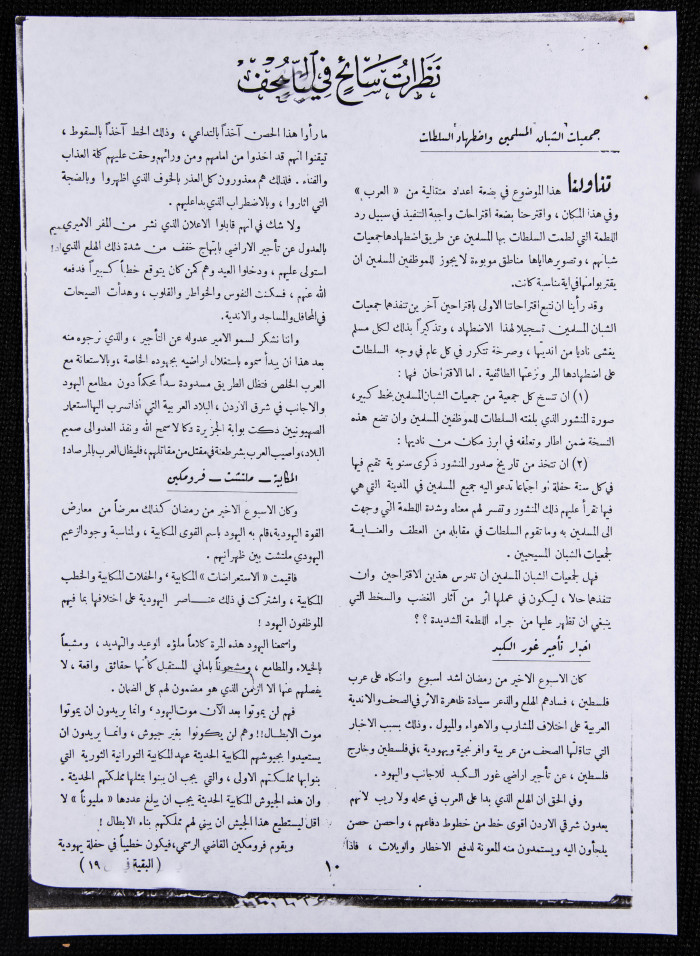 نظرات سائح في الصحف
جمعيات الشبان المسلمين واضطهاد السلطات
تناولنا هذا الموضوع في بضعة اعداد متتالية من « العرب »
وفي هذا المكان ، واقترحنا بضعة اقتراحات واجبة التنفيذ في سبيل رد
اللطمة التي لطمت السلطات بها المسلمين عن طريق اضطهادها جمعيات
شبانهم ، وتصويرها اياها مناطق موبوءة لا يجوز للموظفين المسلمين ان
يقتربوا منها في اية مناسبة كانت .
وقد رأينا ان نتبع اقتراحاتنا الاولى باقتراحين آخرين تنفذهما جمعيات
الشبان المسلمين تسجيلا لهذا الاضطهاد ، وتذكيراً بذلك لكل مسلم
يغشى ناديا من انديتها ، وصرخة تتكرر في كل عام في وجه السلطات
على اضطهادها المر ونزعتها الطائفية . اما الاقتراحان فهما :
(١) ان تنسخ كل جمعية من جمعيات الشبان المسلمين بخط كبير ،
صورة المنشور الذي بلغته السلطات للموظفين المسلمين وان تضع هذه
النسخة ضمن اطار وتعلقه في ابرز مكان من ناديها :
(٢) ان تتخذ من تاريخ صدور المنشور ذكرى سنوية تقيم فيها
في كل سنة حفلة او اجتماعا تدعو اليه جميع المسلمين في المدينة التي هي
فيها تقرأ عليهم ذلك المنشور وتفسر لهم معناه وشدة اللطمة التي وجهت
الى المسلمين به وما تقوم السلطات في مقابله من العطف والعناية
لجمعيات الشبان المسيحيين .
فهل لجمعيات الشبان المسلمين ان تدرس هذين الاقتراحين وان
تنفذهما حالا ، ليكون في عملها اثر من آثار الغضب والسخط التي
ينبغي ان تظهر عليها من جراء اللطمة الشديدة ؟ ؟
اخبار تأجير غور الكبد
كان الاسبوع الاخير من رمضان اشد اسبوع وانكاه على عرب
فلسطين ، فسادهم الهلع والذعر سيادة ظاهرة الاثر في الصحف والاندية
العربية على اختلاف المشارب والاهواء والميول . وذلك بسبب الاخبار
التي تناقلتها الصحف من عربية وافرنجية ويهودية ، في فلسطين وخارج
فلسطين ، عن تأجير اراضي غور الكبد للاجانب واليهود .
وفي الحق ان الهلع الذي بدا على العرب في محله ولا ريب لانهم
يعدون شرقي الاردن اقوى خط من خطوط دفاعهم ، واحصن حصن
يلجأون اليه ويستمدون منه المعونة لدفع الاخطار والويلات ، فاذا
ما رأوا هذا الحصن آخذاً بالتداعي ، وذلك الخط آخذاً بالسقوط ،
تيقنوا انهم قد اخذوا من امامهم ومن ورائهم وحقت عليهم كلمة العذاب
والفناء . فلذلك هم معذورون كل العذر بالخوف الذي اظهروا وبالضجة
التي اثاروا ، وبالاضطراب الذي بدا عليهم .
ولا شك في انهم قابلوا الاعلان الذي نشر من المقر الاميري
بالعدول عن تأجير الاراضي بابتهاج خفف من شدة ذلك الهلع الذي
استولى عليهم ، ودخلوا العيد وهم كمن كان يتوقع خطباً كبيراً فدفعه
الله عنهم ، فسكنت النفوس والخواطر والقلوب ، وهدأت الصيحات
في المحافل والمساجد والاندية .
واننا نشكر لسمو الامير عدوله عن التأجير ، والذي نرجوه منه
بعد هذا ان يبدأ سموه باستغلال اراضيه بجهوده الخاصة ، وبالاستعانة مع
العرب الخلص فتظل الطريق مسدودة سداً محكماً دون مطامع اليهود
والاجانب في شرق الاردن ، البلاد العربية التي اذا تسرب اليها استعمار
الصهيونيين دكت بوابة الجزيرة دكا لا سمح الله ونفذ العدو الى صميم
البلاد ، واصيب العرب بشر طعنة في مقتل من مقاتلهم ، فليظل العرب بالمرصاد !
المكابية – ملتشت – فرومكين
وكان الاسبوع الاخير من رمضان كذلك معرضاً من معارض
القوة اليهودية ، قام به اليهود باسم القوى المكابية ، ولمناسبة وجود الزعيم
اليهودي ملتشت بين ظهرانيهم .
فاقيمت « الاستعراضات » المكابية ، والحفلات المكابية والخطب
المكابية ، واشتركت في ذلك عناصر اليهودية على اختلافها بما فيهم
الموظفون اليهود !
واسمعنا اليهود هذه المرة كلاماً ملؤه الوعيد والتهديد ، ومشبعاً
بالخيلاء والمطامع ، ومشحوناً باماني المستقبل كأنها حقائق واقعة ، لا
يفصلهم عنها الا الزمن الذي هو مضمون لهم كل الضمان .
فهم لن يموتوا بعد الآن موت اليهود ، وانما يريدون ان يموتوا
موت الابطال !! وهم لن يكونوا بغير جيوش ، وانما يريدون ان
يستعيدوا بجيوشهم المكابية الحديثة عهد المكابية التورانية الثورية التي
بنوا بها مملكتهم الاولى ، والتي يجب ان يبنوا بمثلها مملكتهم الحديثة .
وان هذه الجيوش المكابية الحديثة يجب ان يبلغ عددها « مليوناً » لا
اقل ليستطيع هذا الجيش ان يبني لهم مملكتهم بناء الابطال !
ويقوم فرومكين القاضي الرسمي ، فيكون خطيباً في حفلة يهودية
( البقية في ١٩ )
١٠